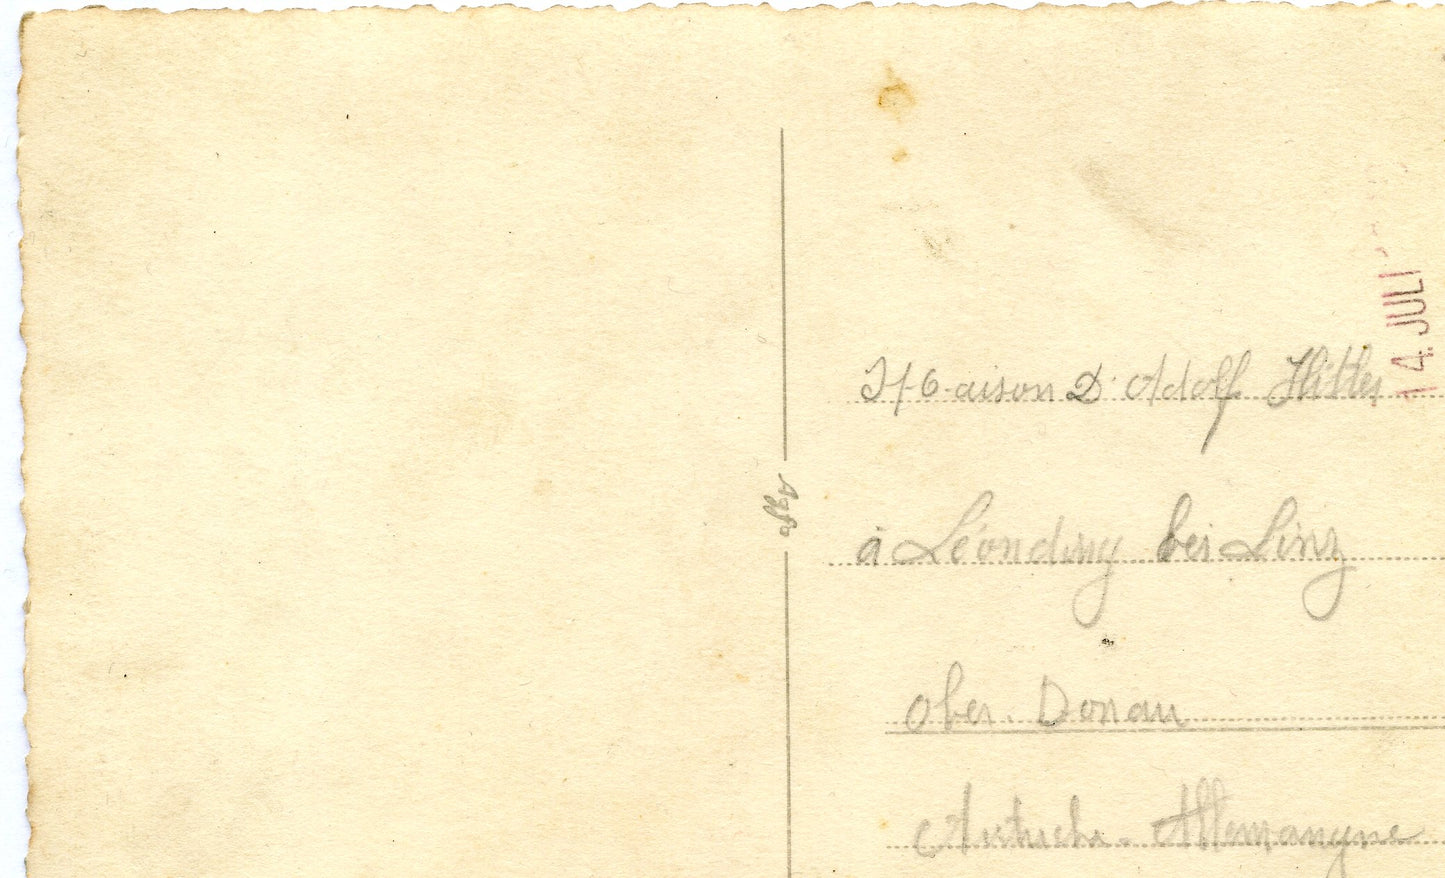 14. JULI
Maison D'Adolf Hitler
à Léonding bei Linz
Agfa
Ober. Donau
Autriche - Allemangne